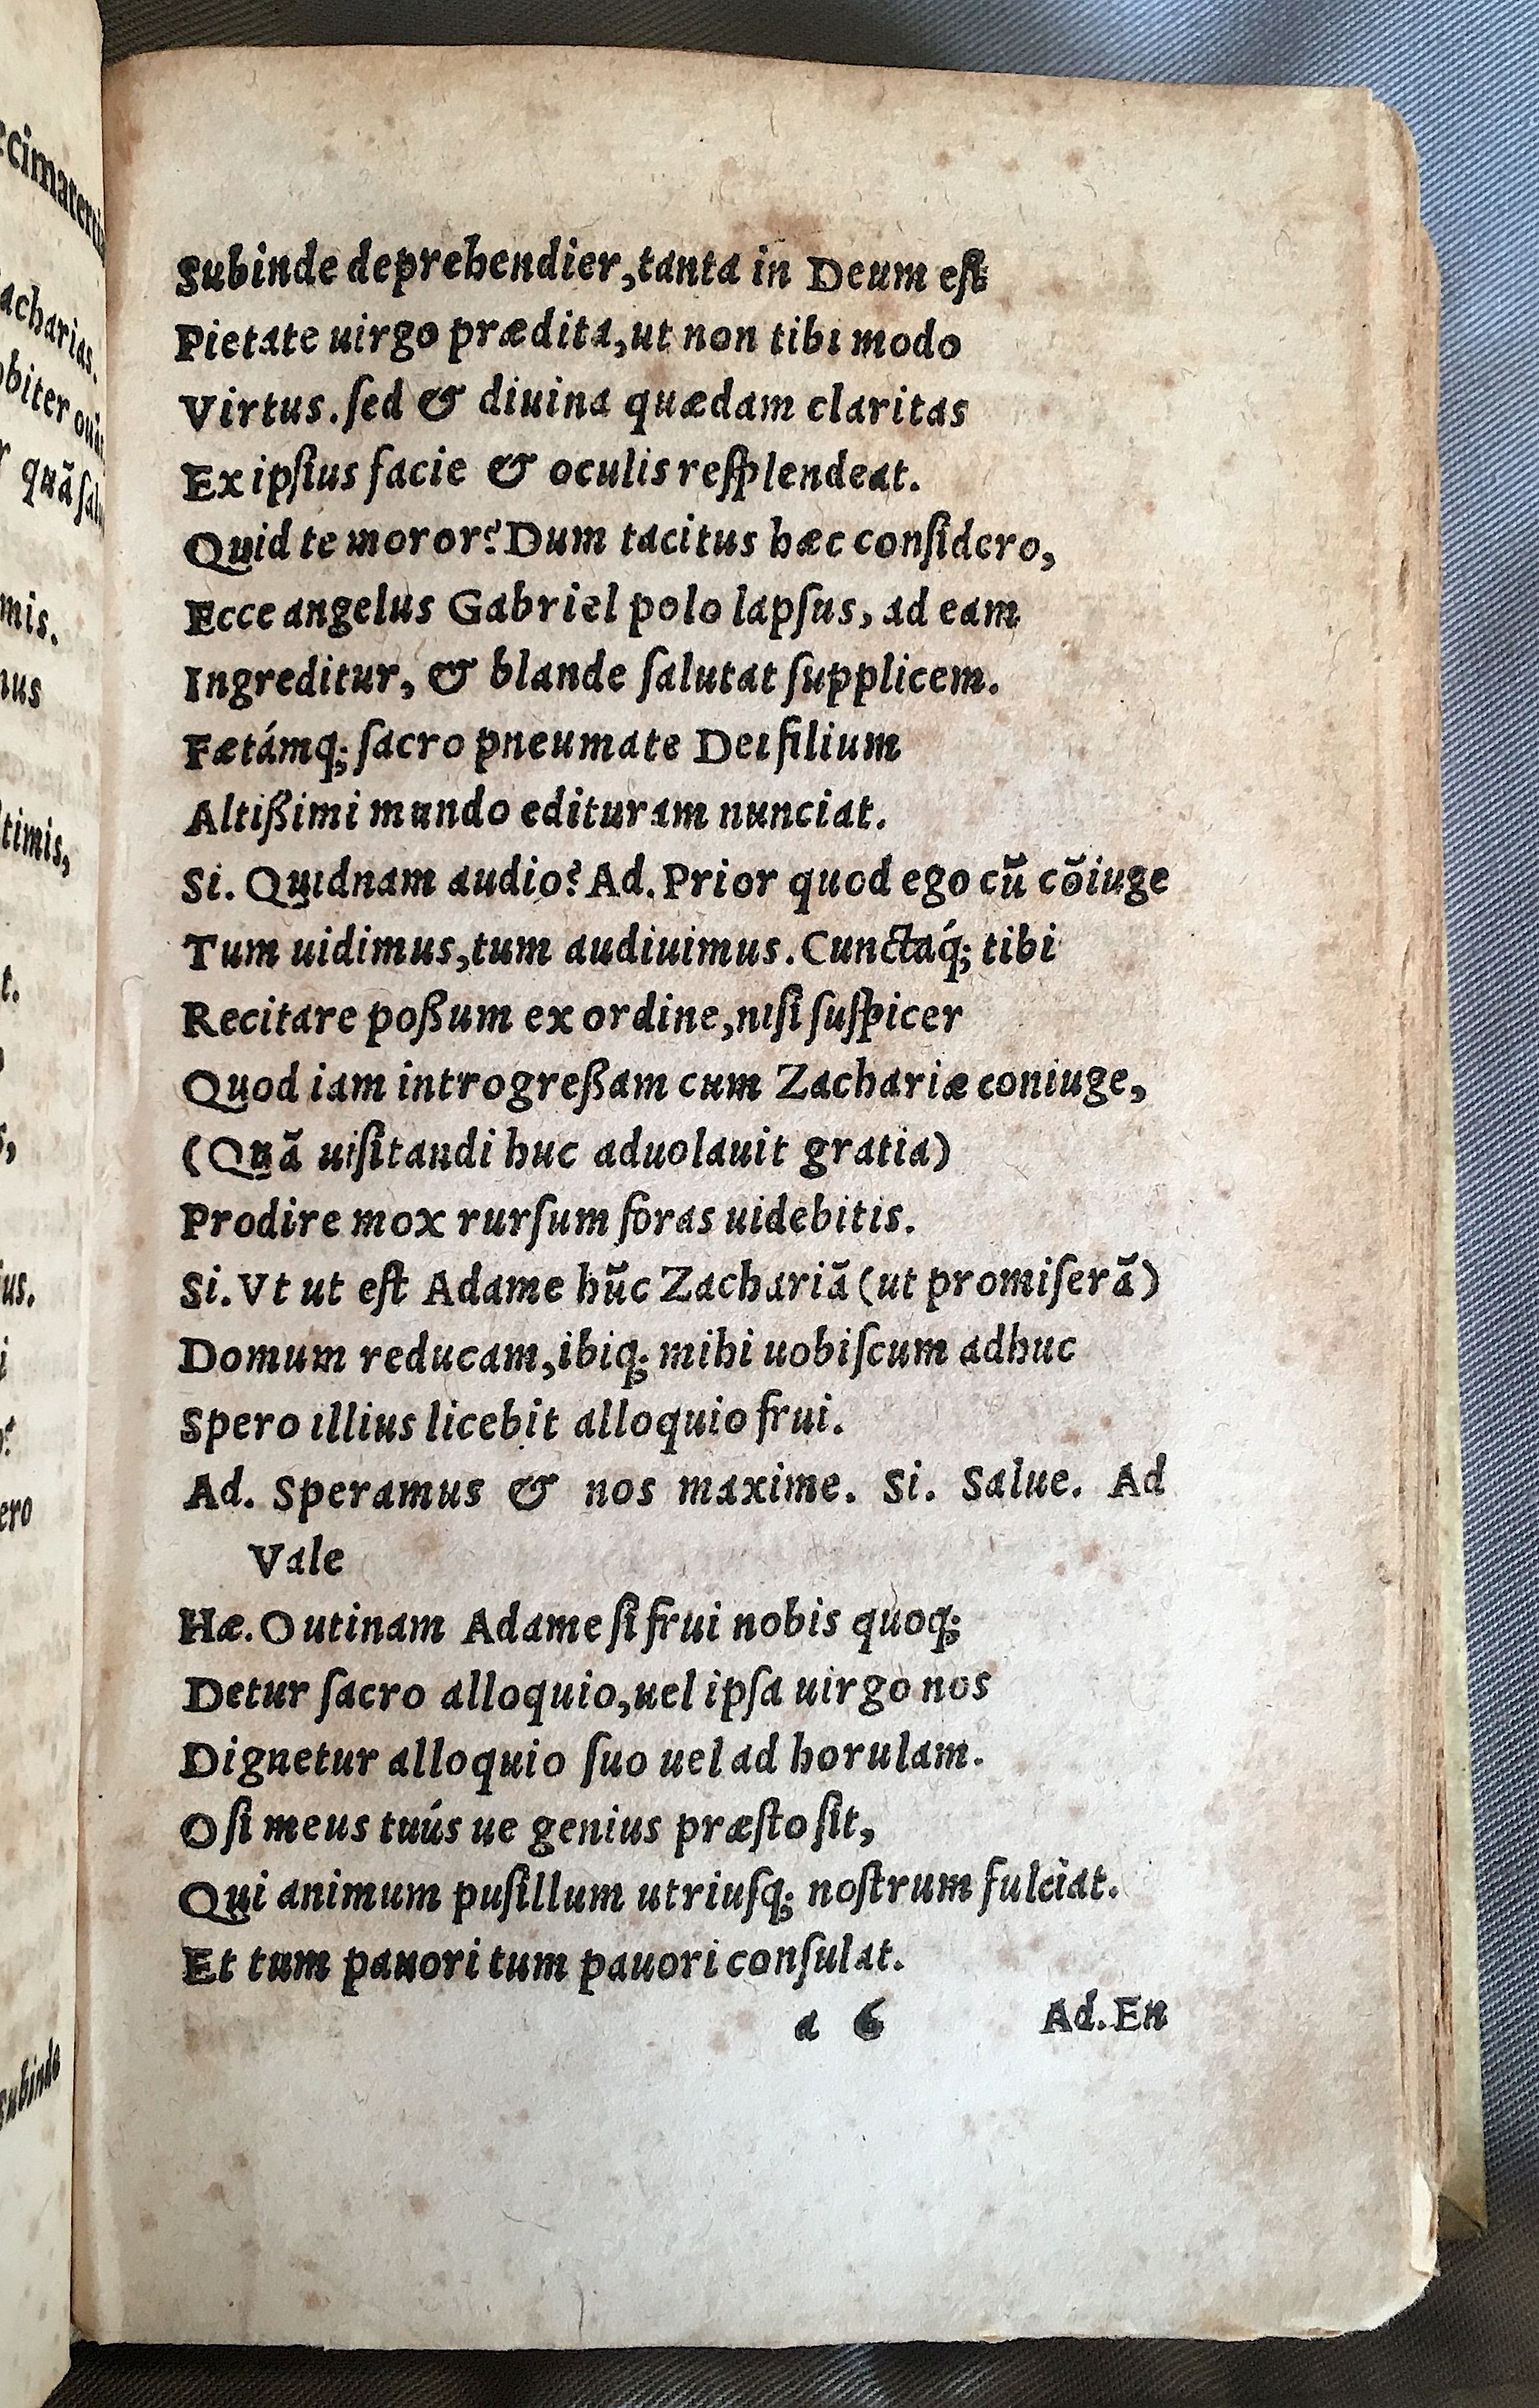 Subinde deprehendier, tanta in Deum est
Pietate uirgo prædita, ut non tibi modo
Virtus. ſed & diuina quædam claritas
Ex ipſius facie & oculis reſplendeat.
Quid te moror? Dum tacitus hæc conſidero,
Ecce angelus Gabriel polo lapſus, ad eam
Ingreditur, & blande ſalutat ſupplicem.
Fætámq; ſacro pneumate Dei filium
Altißimi mundo edituram nunciat.
Si. Quidnam audio? Ad. Prior quod ego cũ cõiuge
Tum uidimus, tum audiuimus. Cunctaq́; tibi
Recitare poßum ex ordine, niſi ſuſpicer
Quod iam introgreßam cum Zachariæ coniuge,
(Quã uiſitandi huc aduolauit gratia)
Prodire mox rurſum foras uidebitis.
Si. Vt ut eſt Adame hũc Zachariã (ut promiſerã)
Domum reducam, ibiq; mihi uobiſcum adhuc
Spero illius licebit alloquio frui.
Ad. Speramus & nos maxime. Si. Salue. Ad
Vale
Hæ. O utinam Adame ſi frui nobis quoq;
Detur ſacro alloquio, uel ipſa uirgo nos
Dignetur alloquio ſuo uel ad horulam.
O ſi meus tuús ue genius præſto ſit,
Qui animum puſillum utriuſq; noſtrum fulciat.
Et tum pauori tum pauori conſulat.
a 6 Ad. En